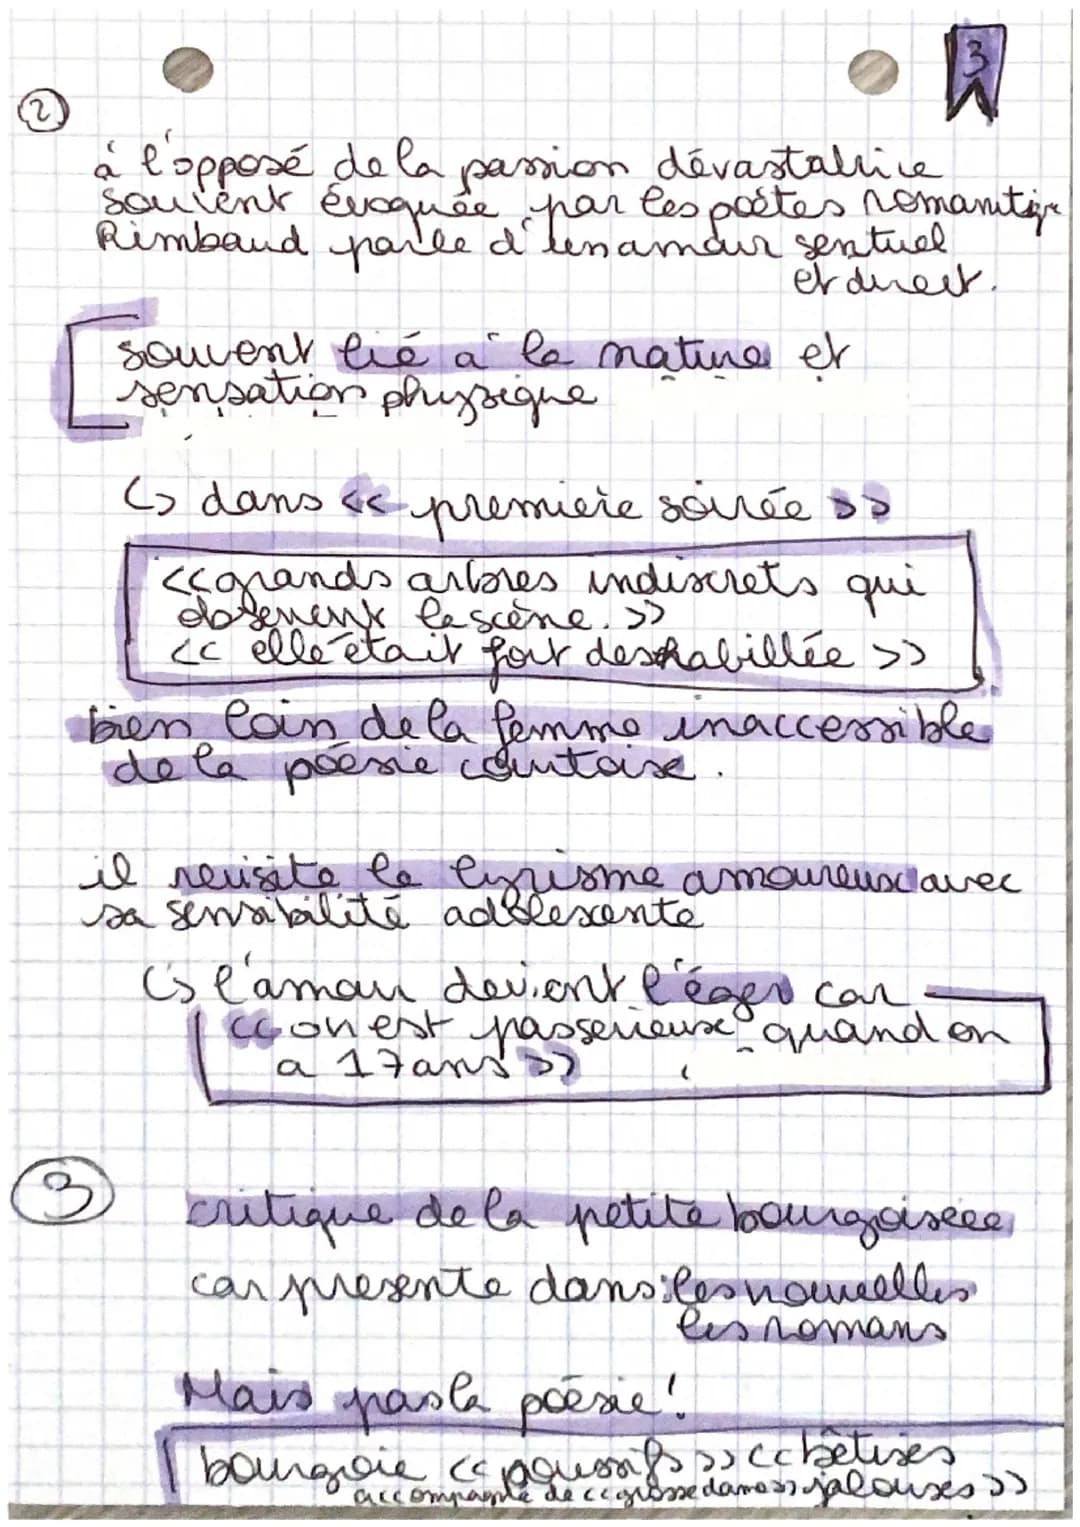 3
2
à l'opposé de la passion dévastatrice
souvent évoquée par les poètes romantiq
Rimbaud parle d'un amour sentuel
et direct.
souvent lié à la nature et
sensation physique
↳ dans << première soirée >>
<< grands arbres indiscrets qui
observent la scène. >>
<< elle était fort deshabillée >>
bien loin de la femme inaccessible
de la poésie courtoise.
il revisite le lyrisme amoureux avec
sa sensibilité adolescente
↳ l'amour devient léger car
<< on est pas serieux quand on
a 17 ans >>
3
critique de la petite bourgoisie
car presente dans : les nouvelles
les romans
Mais pas la poésie !
bourgoie << poussifs >> << bêtises
accompagné de << grosse dames >> jalouses >>